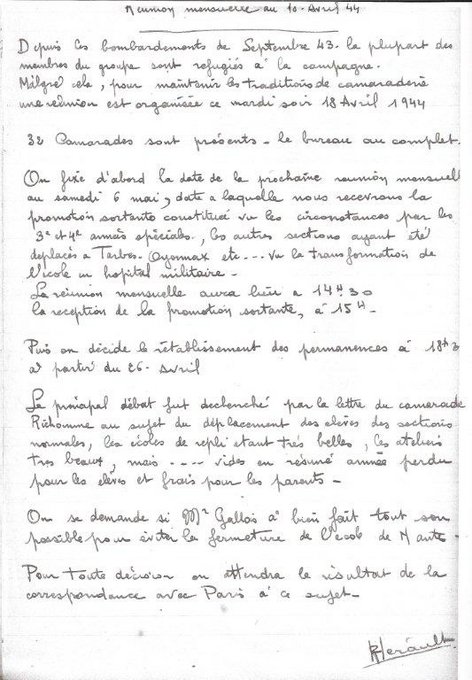 Réunion mensuelle au 10 Avril 44
Depuis les bombardements de Septembre 43. la plupart des
membres du groupe sont refugiés à la campagne.
Malgré cela, pour maintenir les traditions de camaraderie
une réunion est organisée ce mardi soir 18 Avril 1944
32 Camarades sont présents - le bureau au complet.
On fixe d'abord la date de la prochaine reunion mensuell
au samedi 6 mai, date a laquelle nous recevrons la
promotion sortante constituée vu les circonstances par les
3e et 4e années spéciales, les autres sections ayant été
deplacés a Tarbes. Oyonnax etc --- vu la transformation de
l'école en hopital militaire -
La réunion mensuelle aura lieu a 14H30
la reception de la promotion sortante, à 15H-
Puis on décide le rétablissement des permanences à 18H3
à partir du 26- avril
Le principal débat fut declenché par la lettre du camarade
Richomme au sujet du déplacement des elèves des sections
normales, les écoles de repli etant trés belles, les ateliers
tres beaux, mais ---- vides en résumé année perdu
pour les elèves et frais pour les parents -
On se demande si Mr Gallois a bien fait tout son
possible pour éviter la fermeture de l'école de Nante-
Pour toute décision on attendra le résultat de la
correspondance avec Paris à ce sujet-